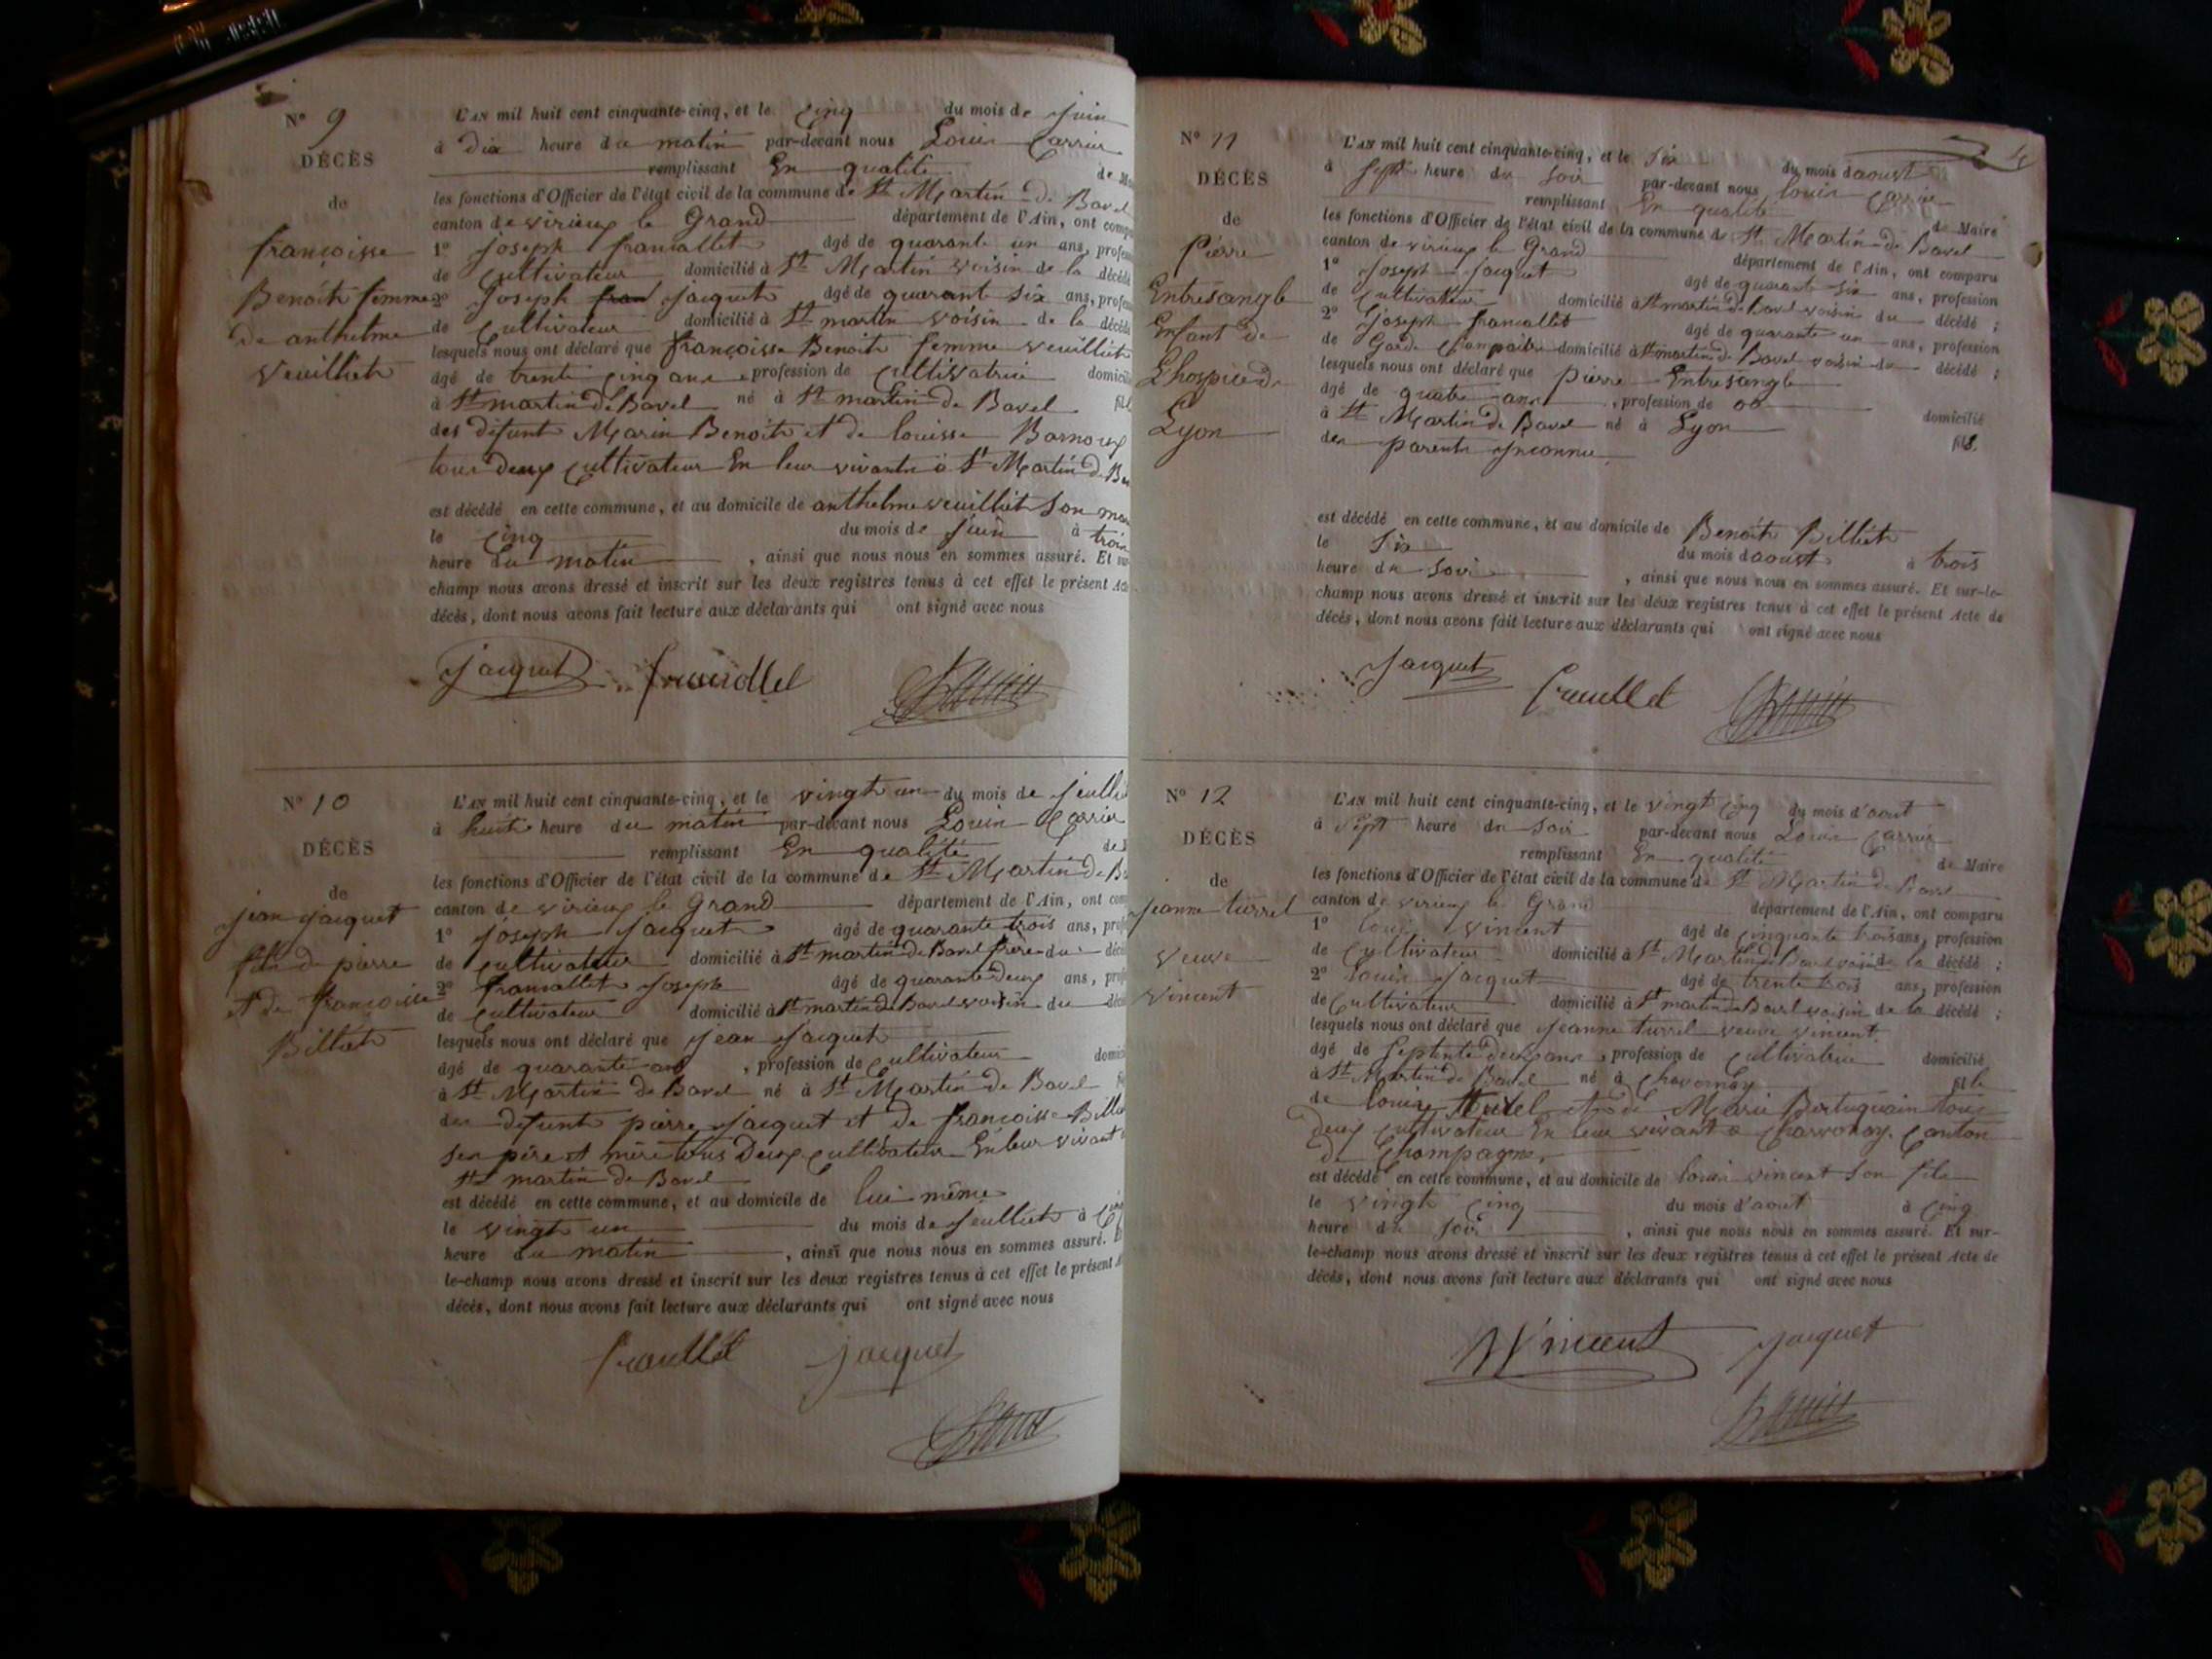 N° 9
DÉCÈS
de
françoisse
Benoit femme
de anthelme
Veuilliet
L'AN mil huit cent cinquante-cinq, et le cinq du mois de juin
à dix heure du matin par-devant nous Louis Carrier
remplissant En qualité de
les fonctions d'Officier de l'état civil de la commune de St Martin de Bavel
canton de virieux le Grand département de l'Ain, ont
1° Joseph francallet âgé de quarante un ans,
de Cultivateur domicilié à St Martin voisin de la décédé
2° Joseph fran Jacquet âgé de quarante six ans,
de Cultivateur domicilié à St martin voisin de la décédé
lesquels nous ont déclaré que françoisse Benoit femme veuilliet
âgé de trente cinq ans profession de Cultivatrice
à St martin de Bavel né à St martin de Bavel
des défunt Marin Benoit et de louisse
tous deux Cultivateur En leur vivants à St Martin de
est décédé en cette commune, et au domicile de anthelme veuilliet son
le cinq du mois de juin à trois
heure du matin , ainsi que nous nous en sommes assuré. Et
champ nous avons dressé et inscrit sur les deux registres tenus à cet effet le présent
décès, dont nous avons fait lecture aux déclarants qui ont signé avec nous
Jacquet francallet
N° 10
DÉCÈS
de
jean jacquet
fils de pierre
et de françoisse
Billiet
L'AN mil huit cent cinquante-cinq, et le vingt un du mois de Jeulliet
à huit heure du matin par-devant nous Louis Carrier
remplissant En qualité
les fonctions d'Officier de l'état civil de la commune de St Martin de
canton de virieux le Grand département de l'Ain, ont
1° Joseph Jacquet âgé de quarante trois ans,
de Cultivateur domicilié à St martin de Bavel frère du
2° francallet Joseph âgé de quarante deux ans,
de Cultivateur domicilié à St martin de Bavel voisin du
lesquels nous ont déclaré que jean Jacquet
âgé de quarante ans , profession de Cultivateur
à St Martin de Bavel né à St Martin de Bavel
des défunt pierre Jacquet et de françoisse
ses père et mère tous Deux Cultivateur En leur vivant
St martin de Bavel
est décédé en cette commune, et au domicile de lui même
le vingt un du mois de Jeulliet à
heure du matin , ainsi que nous nous en sommes assuré.
le-champ nous avons dressé et inscrit sur les deux registres tenus à cet effet le présent
décès, dont nous avons fait lecture aux déclarants qui ont signé avec nous
francallet jacquet
N° 11
DÉCÈS
de
Pierre
Entresangle
Enfant de
Lhospice de
Lyon
L'AN mil huit cent cinquante-cinq, et le Six du mois d aoust
à sept heure du soir par-devant nous louis Carrier
remplissant En qualité de Maire
les fonctions d'Officier de l'état civil de la commune de St Martin de Bavel
canton de virieux le Grand département de l'Ain, ont comparu
1° Joseph Jacquet âgé de quarante six ans, profession
de Cultivateur domicilié à St martin de Bavel voisin du décédé ;
2° Joseph francallet âgé de quarante un ans, profession
de Garde Champaitre domicilié à St martin de Bavel voisin du décédé ;
lesquels nous ont déclaré que Pierre Entresangle
âgé de quatre ans , profession de oo domicilié
à St Martin de Bavel né à Lyon fils
des parents Inconnu
est décédé en cette commune, et au domicile de Benoit Billiet
le Six du mois d aoust à trois
heure du soir , ainsi que nous nous en sommes assuré. Et sur-le-
champ nous avons dressé et inscrit sur les deux registres tenus à cet effet le présent Acte de
décès, dont nous avons fait lecture aux déclarants qui ont signé avec nous
Jacquet francallet
N° 12
DÉCÈS
de
Jeanne turrel
veuve
vincent
L'AN mil huit cent cinquante-cinq, et le vingt cinq du mois d'aout
à sept heure du soir par-devant nous Louis Carrier
remplissant En qualité de Maire
les fonctions d'Officier de l'état civil de la commune de St Martin de Bavel
canton de virieux le Grand département de l'Ain, ont comparu
1° louis vincent âgé de cinquante trois ans, profession
de Cultivateur domicilié à St Martin de Bavel voisin de la décédé ;
2° louis Jacquet âgé de trente trois ans, profession
de Cultivateur domicilié à St martin de Bavel voisin de la décédé ;
lesquels nous ont déclaré que Jeanne turrel veuve vincent
âgé de septente deux ans , profession de Cultivatrice domicilié
à St Martin de Bavel né à Chavornay fille
de louis et de Marie tous
deux Cultivateur En leur vivant à Chavornay Canton
de Champagne
est décédé en cette commune, et au domicile de louis vincent son fils
le vingt cinq du mois d'aout à cinq
heure du soir , ainsi que nous nous en sommes assuré. Et sur-
le-champ nous avons dressé et inscrit sur les deux registres tenus à cet effet le présent Acte de
décès, dont nous avons fait lecture aux déclarants qui ont signé avec nous
Vincent Jacquet